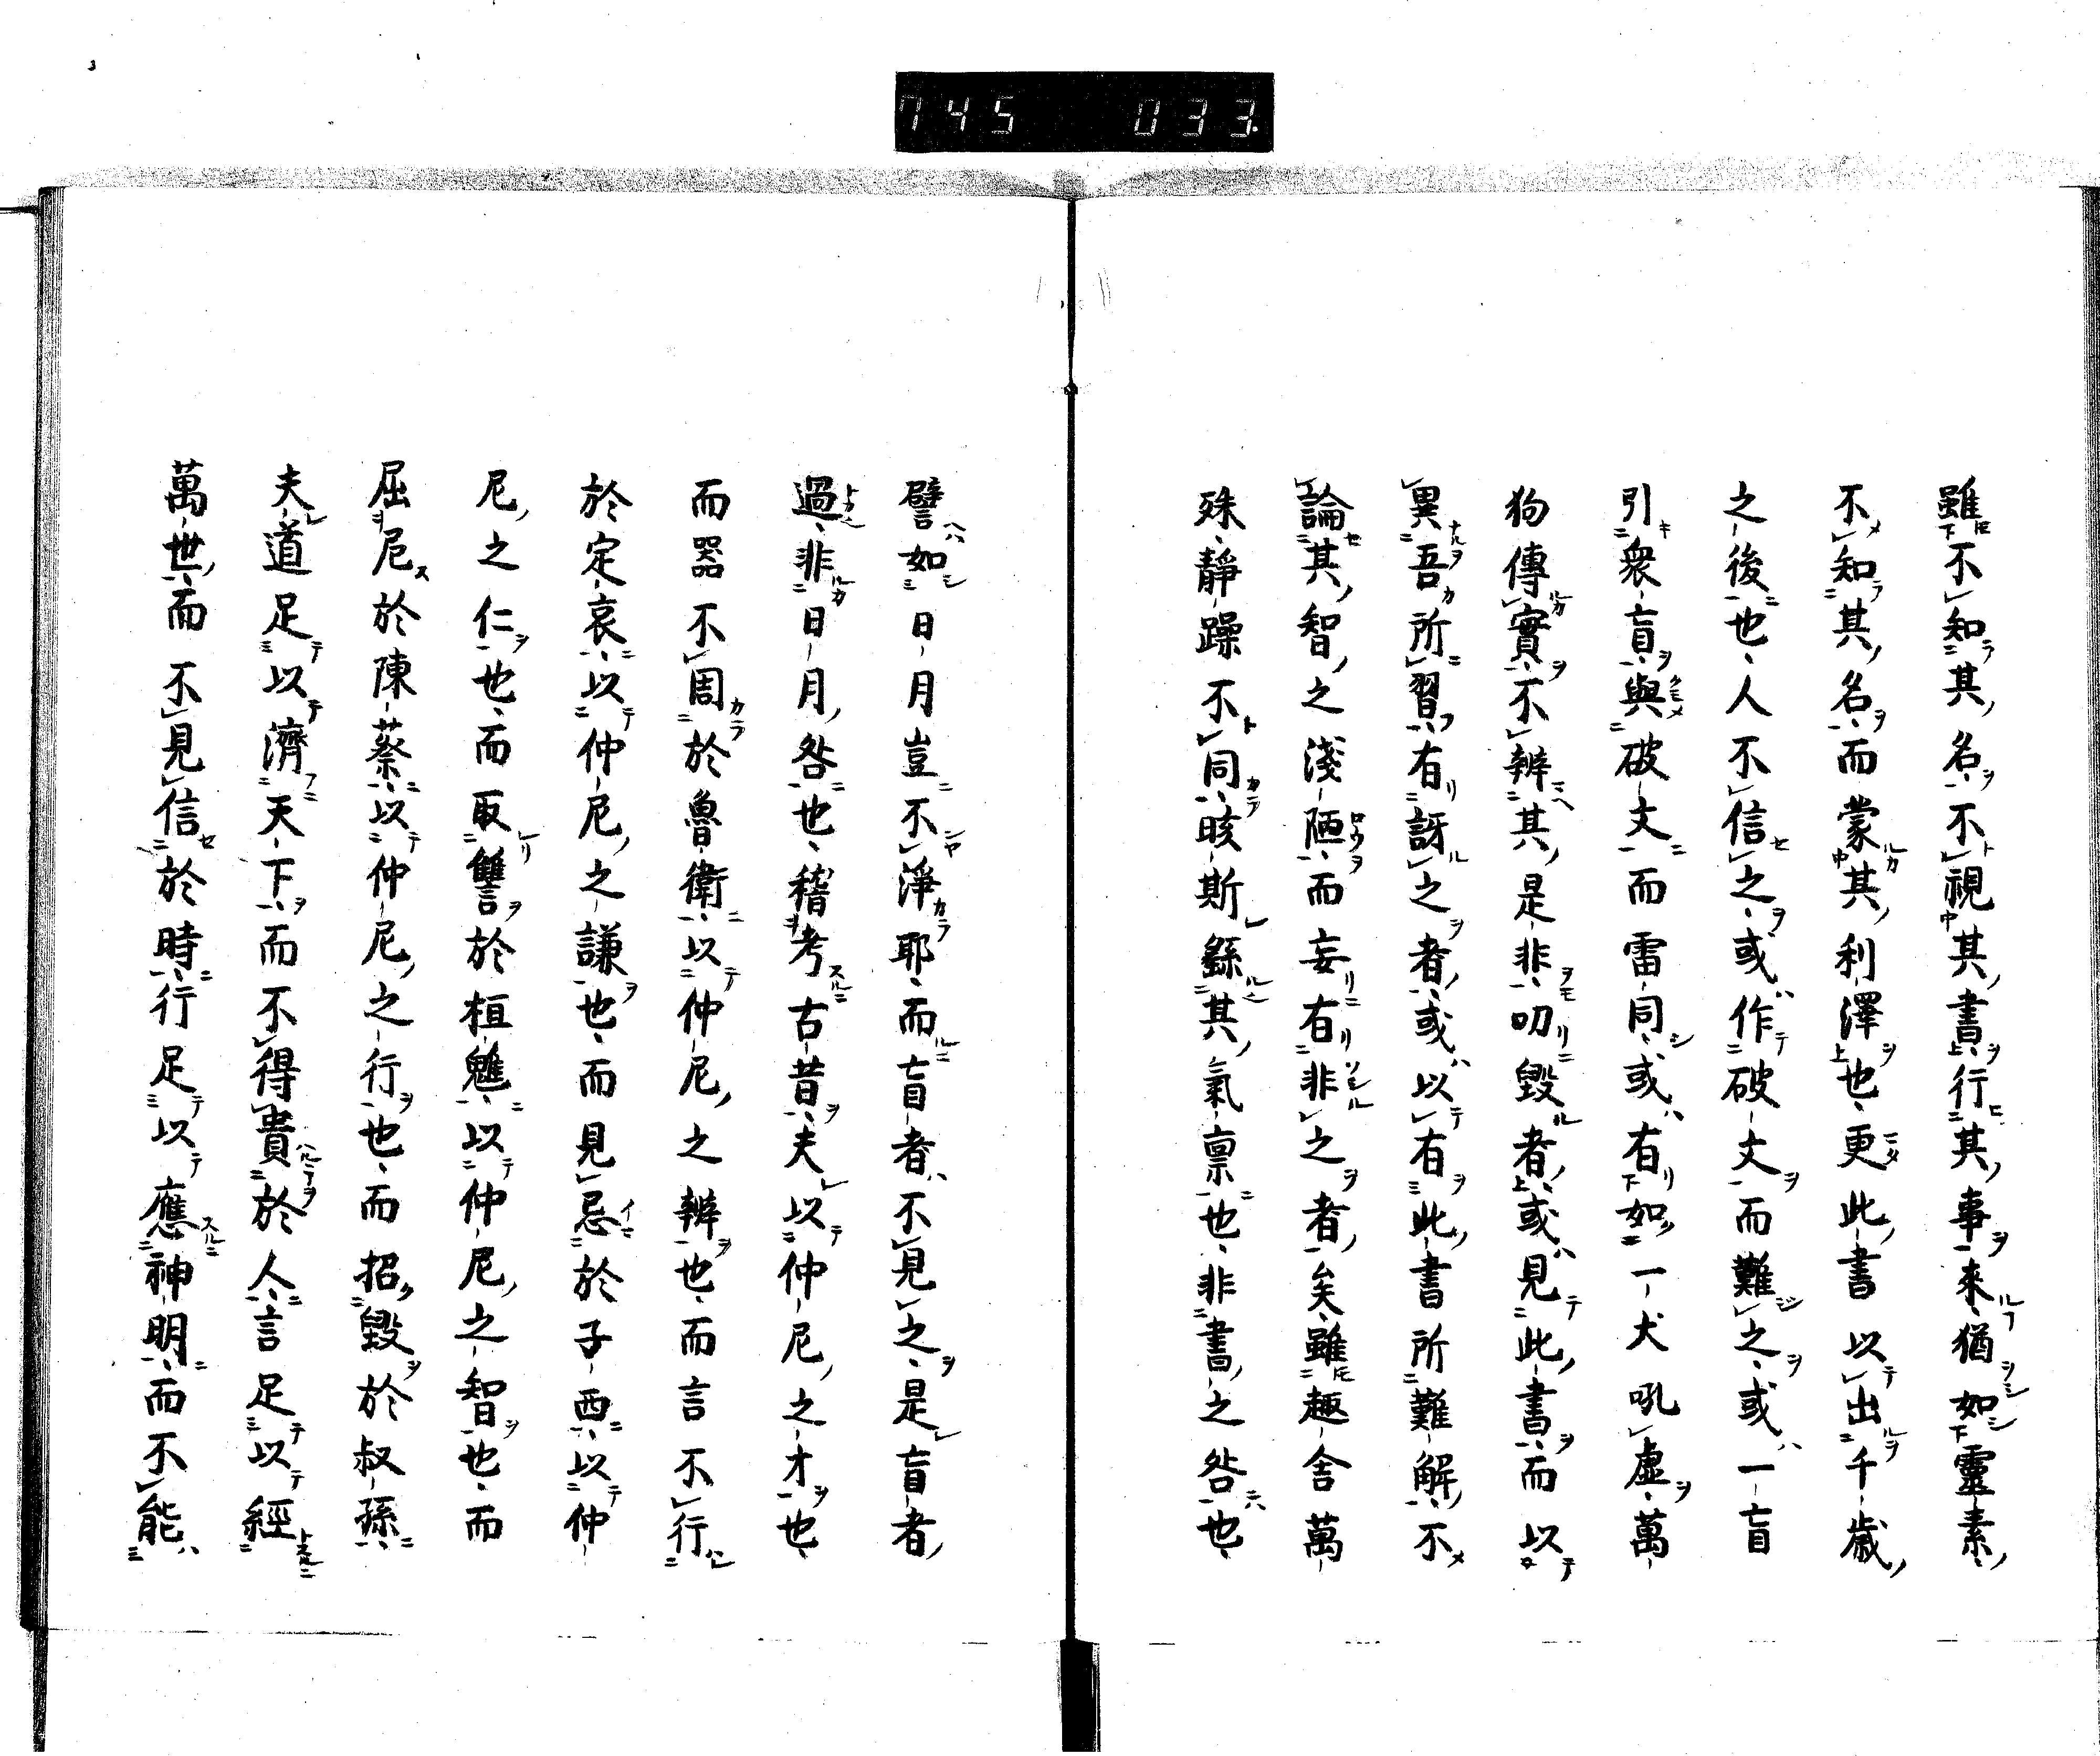 745 033
雖不知其名不視其書行其事来猶如靈素
不知其名而蒙其利澤也更此書以出千歳
之後也人不信之或作破文而難之或一盲
引衆盲與破文而雷同或有如一犬吼虚萬
狗傳實不辨其是非叨毀者或見此書而以
異吾所習有訝之者或以有此書所難解不
論其智之淺陋而妄有非之者矣雖趣舍萬
殊靜躁不同咳斯繇其氣禀也非書之咎也
譬如日月豈不淨耶而盲者不見之是盲者
過非日月咎也稽考古昔夫以仲尼之才也
而器不周於魯衛以仲尼之辨也而言不行
於定哀以仲尼之謙也而見忌於子西以仲
尼之仁也而取讐於桓魋以仲尼之智也而
屈戹於陳蔡以仲尼之行也而招毀於叔孫
夫道足以濟天下而不得貴於人言足以經
萬世而不見信於時行足以應神明而不能